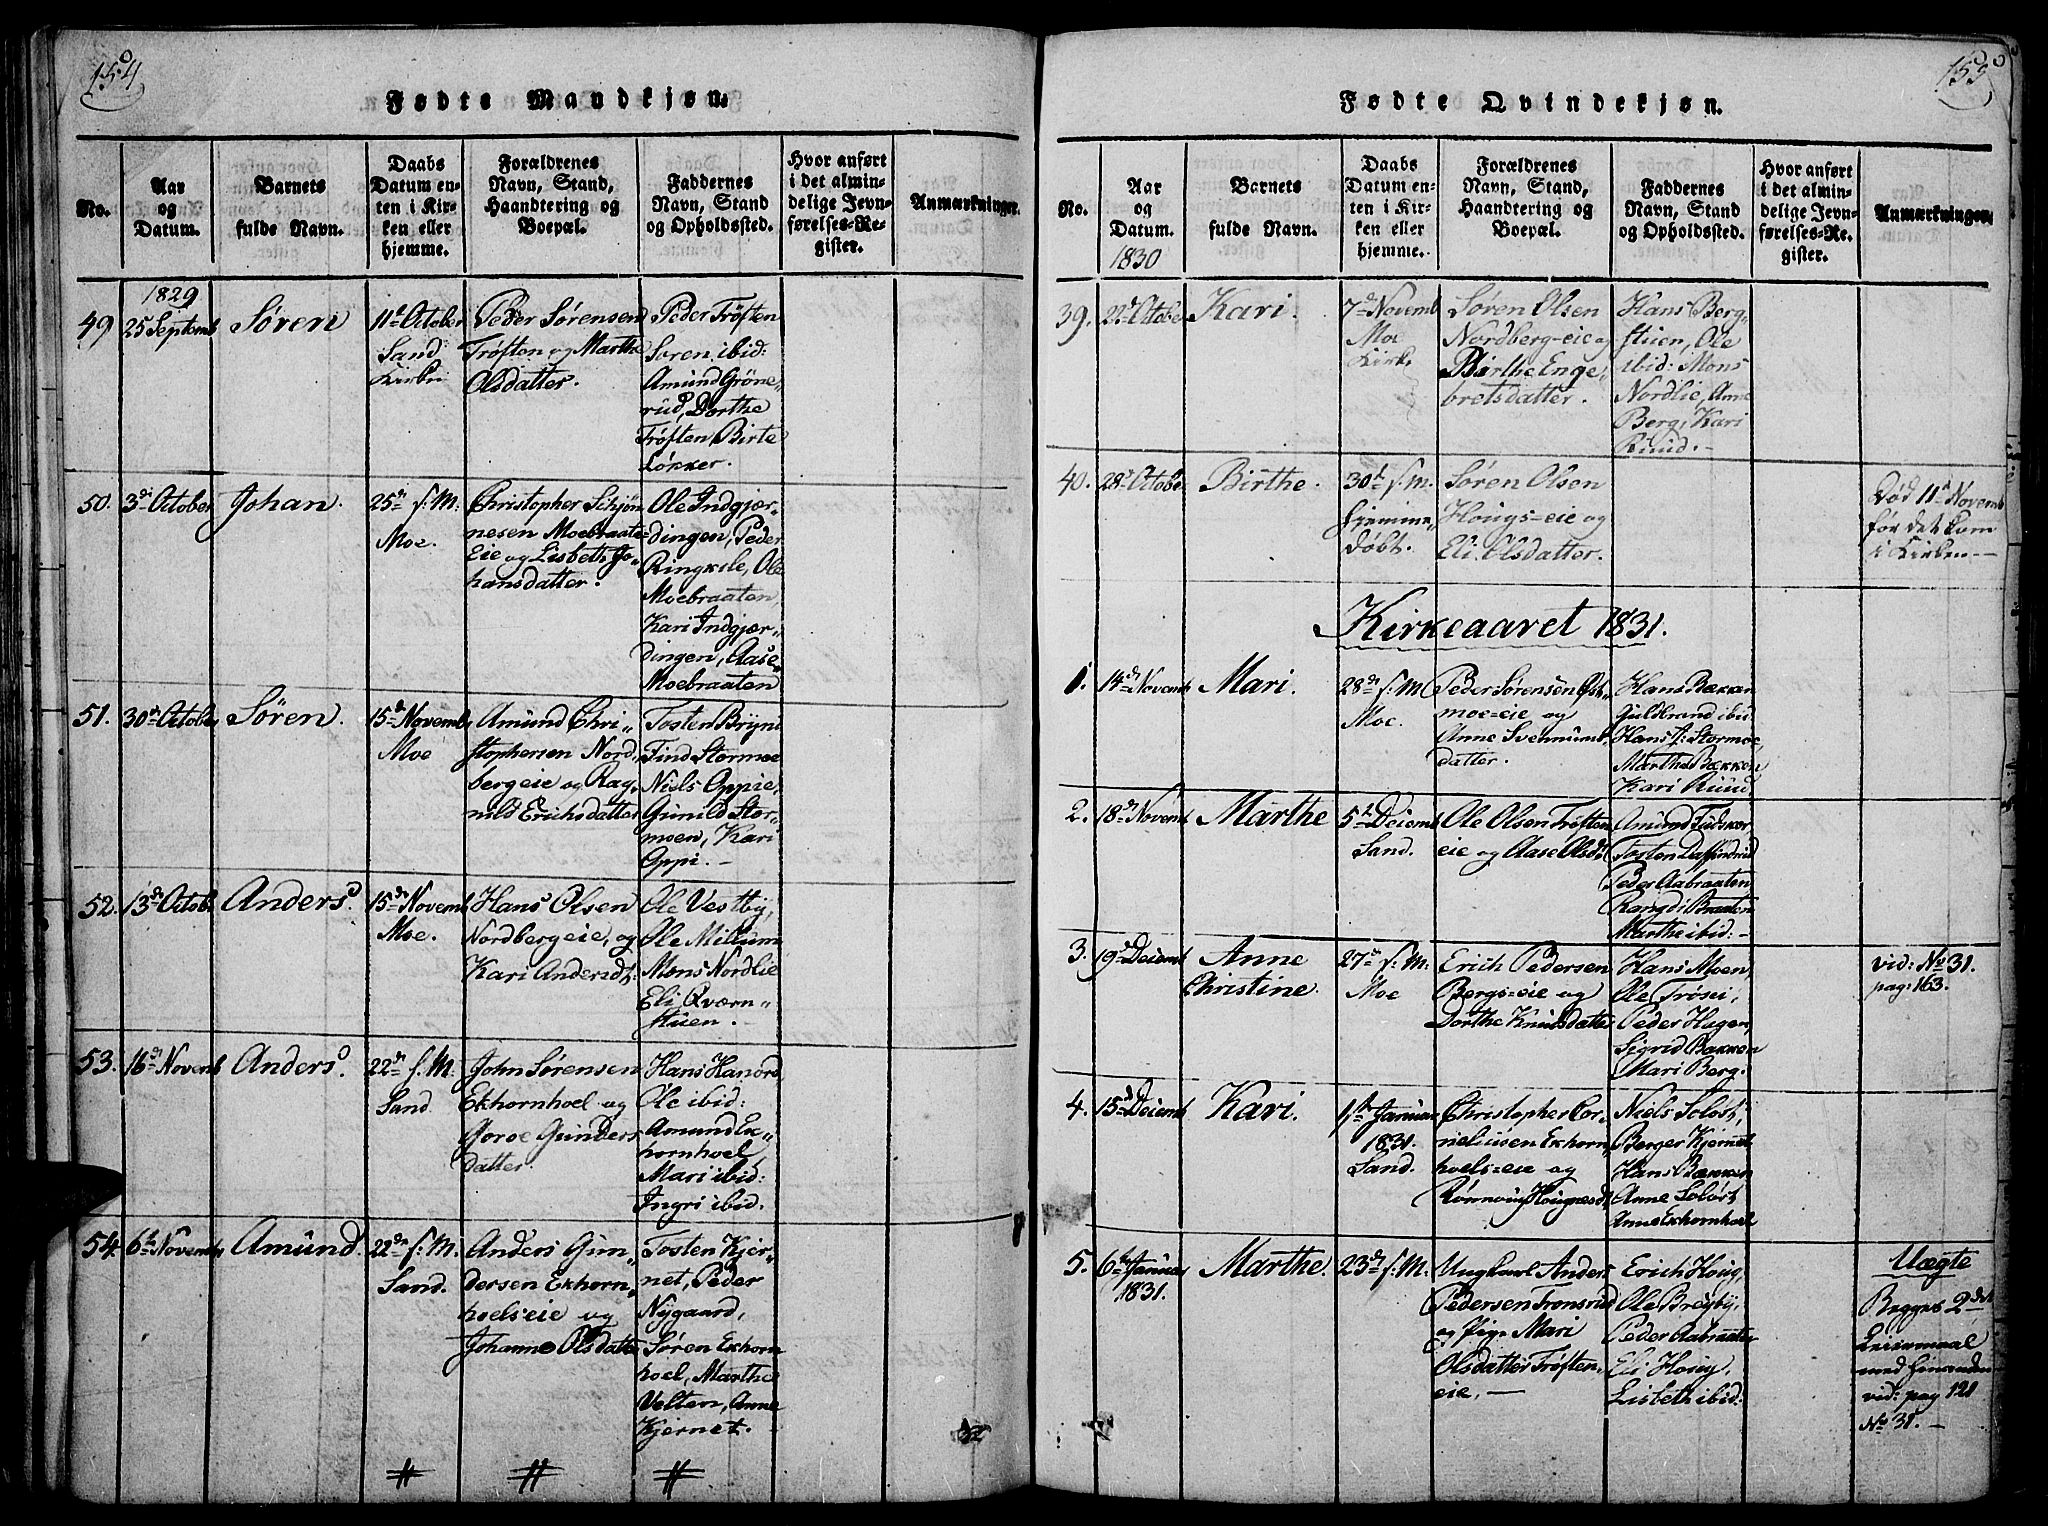 154
Fødte Mandkjøn.
No.
Aar
og
Datum.
Barnets
fulde Navn.
Daabs
Datum en-
ten i Kir-
ken eller
hjemme.
Forældrenes
Navn, Stand,
Haandtering og
Boepæl.
Faddernes
Navn, Stand
og Opholdssted.
Hvor anført
i det almin-
delige Jevn-
førelses-Re-
gister.
Anmærkninger.
1829
49
25 Septemb
Søren
11t October
Sand
Kirken
Peder Sørensen
Trøften og Marthe
Olsdatter.
Peder Trøften
Soren ibid:
Amund Grøne„
rud, Dorthe
Trøften, Birte
Løkker.
50.
3di October
Johan.
25de f: M:
Moe.
Christopher Schjøn
nesen Moebraate
Eie og Lisbeth Jo„
hansdatter.
Ole Indgjær„
dingen, Peder
Ringkile, Ole
Moebraaten,
Kari Indgjær„
dingen, Aase
Moebraaten
51.
30te Octobr
Søren.
15de Novemb
Moe
Amund Chri„
stophersen Nord„
bergeie og Rag„
nild Erichsdatter
Tosten Brynie
Find Stormoe
Niels Oppie,
Gunild Stor„
moen, Kari
Oppi. –
52.
13de Octob.
Anders.
15de Novemb
Moe.
Hans Olsen
Nordbergeie, og
Kari Andersdt:
Ole Vestby,
Ole Millum
Mons Nordlie
Eli Qværn„
stuen. –
53.
16de Novemb
Anders.
22de f. M.
Sand
John Sørensen
Ekhornhoel og
Goroe Gunders
datter.
Hans Hanord
Ole ibid:
Amund Ek„
hornhoel,
Mari ibid:
Ingri ibid.
54.
6te Novemb
Amund.
22de f: M.
Sand.
Anders Gun„
dersen Ekhorn„
hoelseie og
Johanne Olsdatte
Tosten Kjer„
net, Peder
Nygaard,
Søren Ekhorn
hoel, Marthe
Velten, Anne
Kjernet.
155
Fødte Qvindekjøn.
No.
Aar
og
Datum.
Barnets
fulde Navn.
Daabs
Datum en-
ten i Kir-
ken eller
hjemme.
Forældrenes
Navn, Stand,
Haandtering og
Boepæl.
Faddernes
Navn, Stand
og Opholdssted.
Hvor anført
i det almin-
delige Jevn-
førelses-Re-
gister.
Anmærkninger.
1830
39.
22de Octobe
Kari.
7de Novemb
Moe
Kirke
Søren Olsen
Nordberg-eie og
Birthe Enge„
bretsdatter.
Hans Berg„
stuen, Ole
ibid: Mons
Nordlie, Anne
Berg, Kari
Ruud. –
40.
28de Octobe
Birthe.
30te f. M.
hjemme„
døbt.
Søren Olsen
Hougs-eie og
Eli Olsdatter.
Død 11te Novemb
før det kom
i Kirken –
Kirkeaaret 1831.
1.
14de Novemb
Mari.
28de f: M
Moe.
Peder Sørensen Øst„
moe-eie og
Anne Svennums„
datter.
Hans Bækken
Guldbrand ibid
Hans f: Stormoe,
Marthe Bækken
Kari Ruud
2.
18de Novemb
Marthe
5te Decemb
Sand.
Ole Olsen Trøften
eie og Aase Olsdt
Amund
Tosten
Peder Aabraaten
Rangdi Braaten
Marthe ibid: –
3.
19de Decemb
Anne
Christine.
27de f: M.
Moe
Erich Pedersen
Bergs-eie og
Dorthe Knudsdatte
Hans Moen
Ole Trøsei,
Peder Hagen,
Sigrid Bækken
Mari Berg.
vid: No 31.
pag: 163.
4.
15de Decemb
Kari.
1ste Januar
1831.
Sand.
Christopher Cor„
neliusen Ekhorn„
hoels-eie og
Rønnoug Hougnesdt
Niels Soløst,
Berger Kjernet
Hans Bækken
Anne Soløst
Anne Ekhornhoel
5.
6te Januar
1831.
Marthe.
23de f: M.
Ungkarl Anders
Pedersen Tronsrud
og Pige Mari
Olsdatter Trøften„
eie, –
Erich Houg,
Ole Breyby,
Peder Aabraaten
Eli Houg,
Lisbeth ibid:
Uægte
Begges 2det
Leiermaal
med hinanden
vid: pag 121
No 31. –